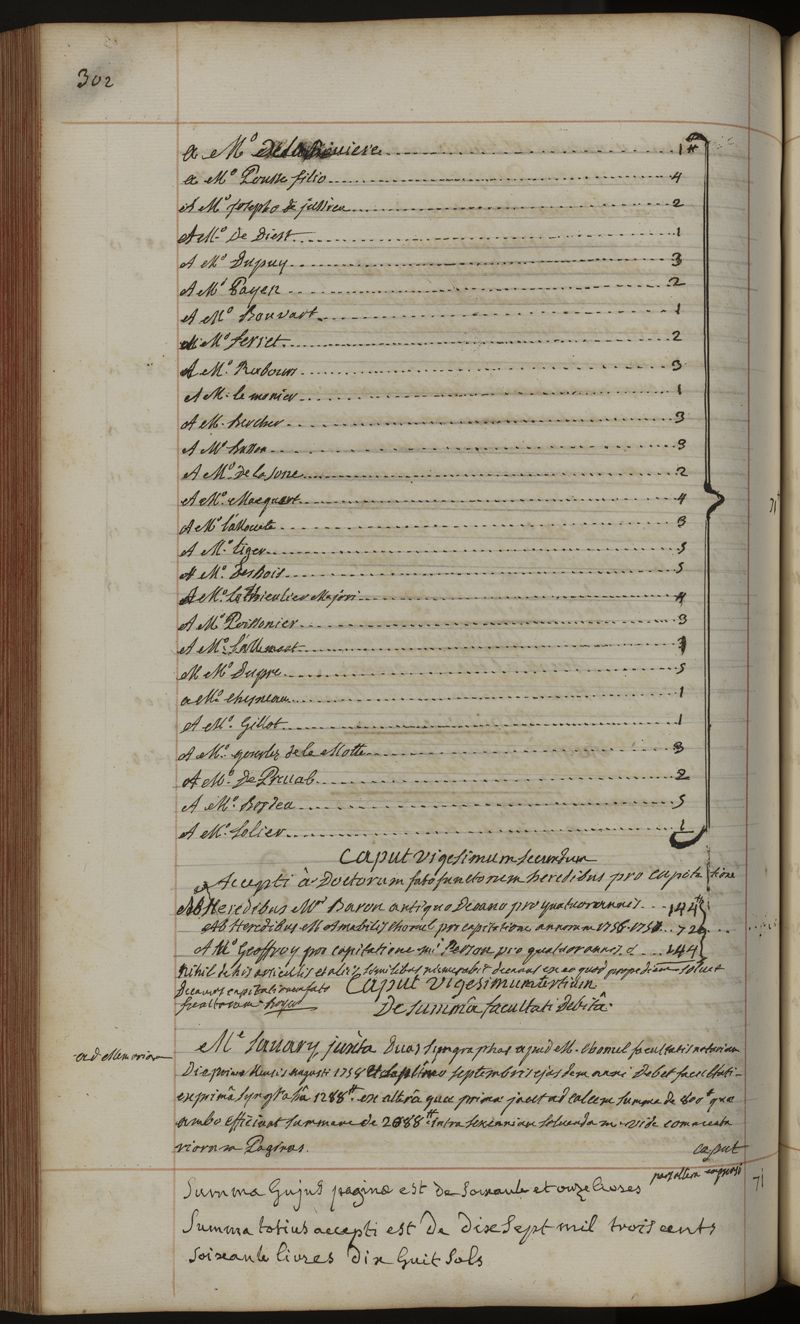 302
a M.º ........ 1 ₶
a M.º Pousse filio ........ 4
A M.º Josepho de jussieu ........ 2
A M.º De Diest ........ 1
A M.º Dupuy ........ 3
A M.º Payen ........ 2
A M.º Bouvart ........ 1
A M.º ferret ........ 2
A M.º Rabours ........ 3
A M. le monier ........ 1
A M. Bercher ........ 3
A M.º ........ 3
A M.º de la sone ........ 2
A M.º Macquart ........ 4
A M.º ........ 3
A M.º tiger ........ 5
A M.º DesBois ........ 5
A M.º Majori ........ 4
A M.º Poissonier ........ 3
A M.º L'allemant ........
A M.º Dupre ........ 5
a M.º ........ 1
A M.º Gillot ........ 1
A M.º de la Motte ........ 3
A M.º De Preval ........ 2
A M.º Bordeu ........ 5
A M.º Solier ........ 1
Caput vigesimum secundum
Accepti à Doctorum fato functorum heredibus pro capitatione
Ab Heredibus M.ri Baron antiquo Decano pro quatuor annis ... 144 ₶
Ab Heredibus M Amabilis Chomel pro capitatione annorum 1756. ... 72
A M.º Geoffroy pro capitatione m.i Person pro quatuor annis ... 144
Nihil de his articulis et aliis similibus numerabit decanus ex eo quod propediem solvet
Decanus capitationem fato
functorum. Boyer
Caput vigesimum tertium
De summâ facultati Debitâ.
ad Memoriam
M.e Savary juxta duas syngraphas apud M. Chomel facultatis notarium
Die prima mensis augusti 1758 et septembris ejusdem anni Debet facultati
ex primâ syngraphâ 1288 ₶ ex alterâ quae prima jacet ad calcem summa de 800 ₶ quae
ambo efficiunt summam de 2088 ₶ intra sexennium solvendam. vide comment
riorum Paginas. caput
pars altera
Summa hujus paginae est de Soixante et onze livres 71
Summa totius accepti est De Dix Sept mil trois cents
Soixante livres Dix huit Sols